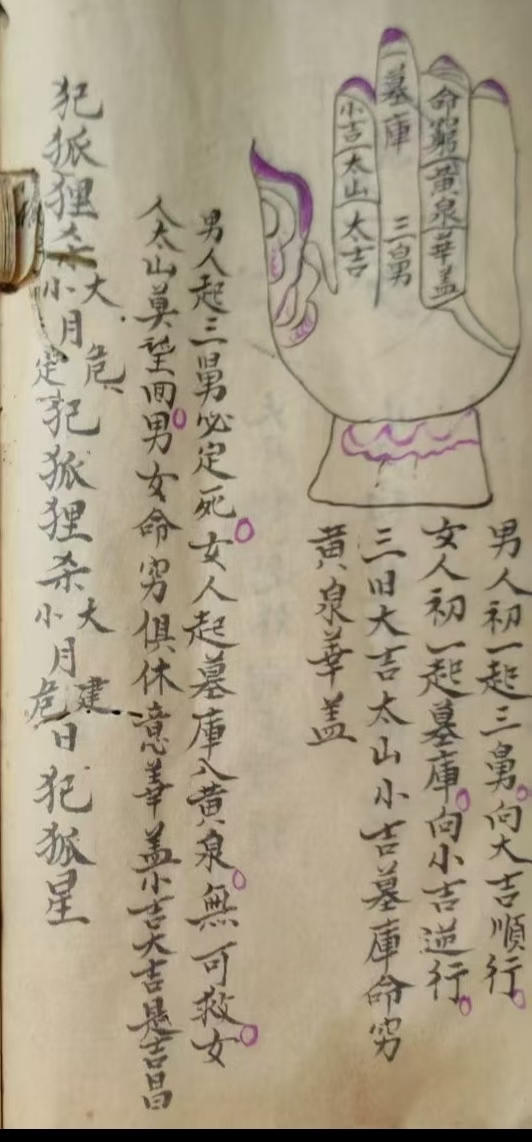 命窮
黃泉
華盖
墓庫
三舅
小吉
太山
大吉
男人初一起三舅。向大吉順行。
女人初一起墓庫。向小吉逆行。
三旧大吉太山小吉墓庫命穷
黃泉華盖
男人起三舅必定死。女人起墓庫入黃泉。無可救。女
人太山莫望回。男女命穷俱休意華盖小吉大吉是吉昌
犯狐狸杀大小月危定犯狐狸杀大小月建危日犯狐星